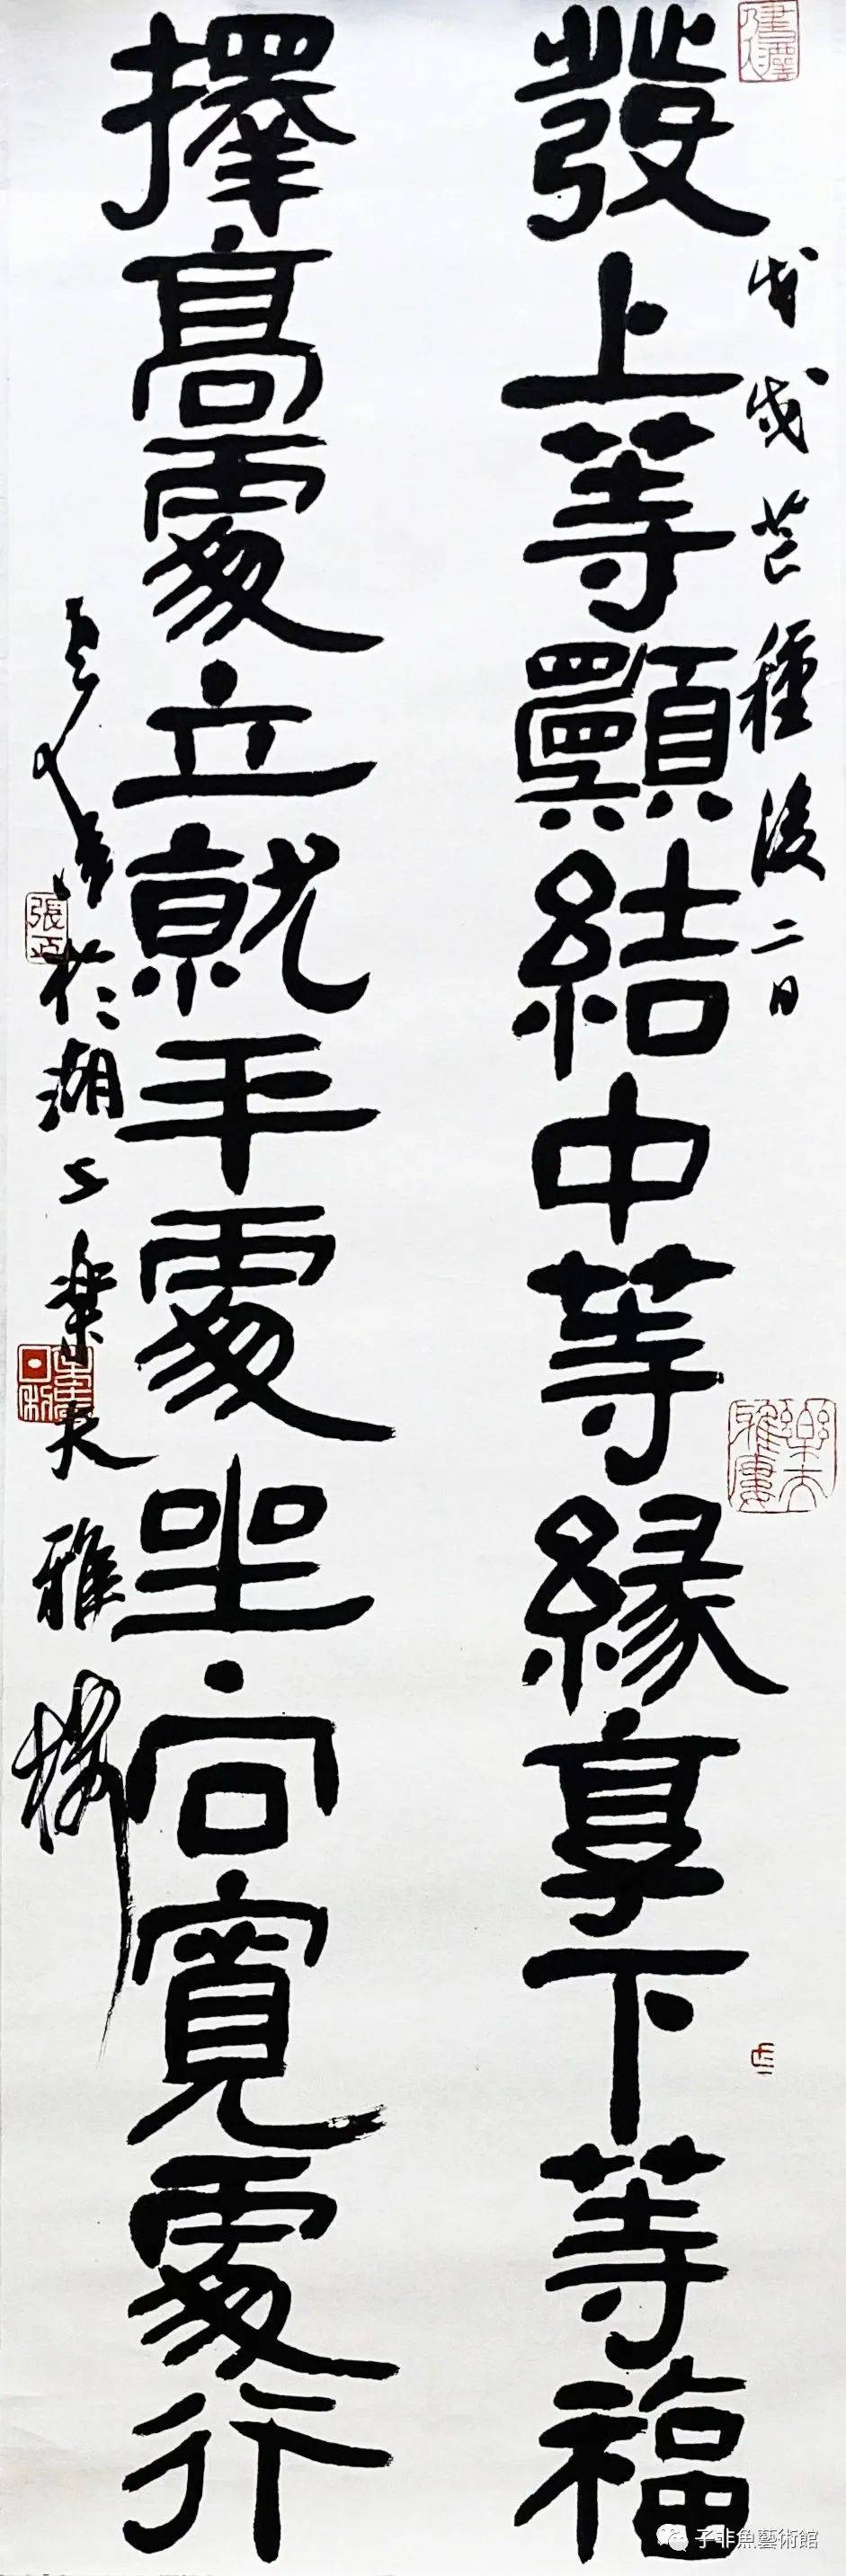 發上等願結中等緣享下等福
擇高處立就平處坐向寬處行
戊戌芒種後二日
於湖上樂大雅樓
張
子非魚藝術館